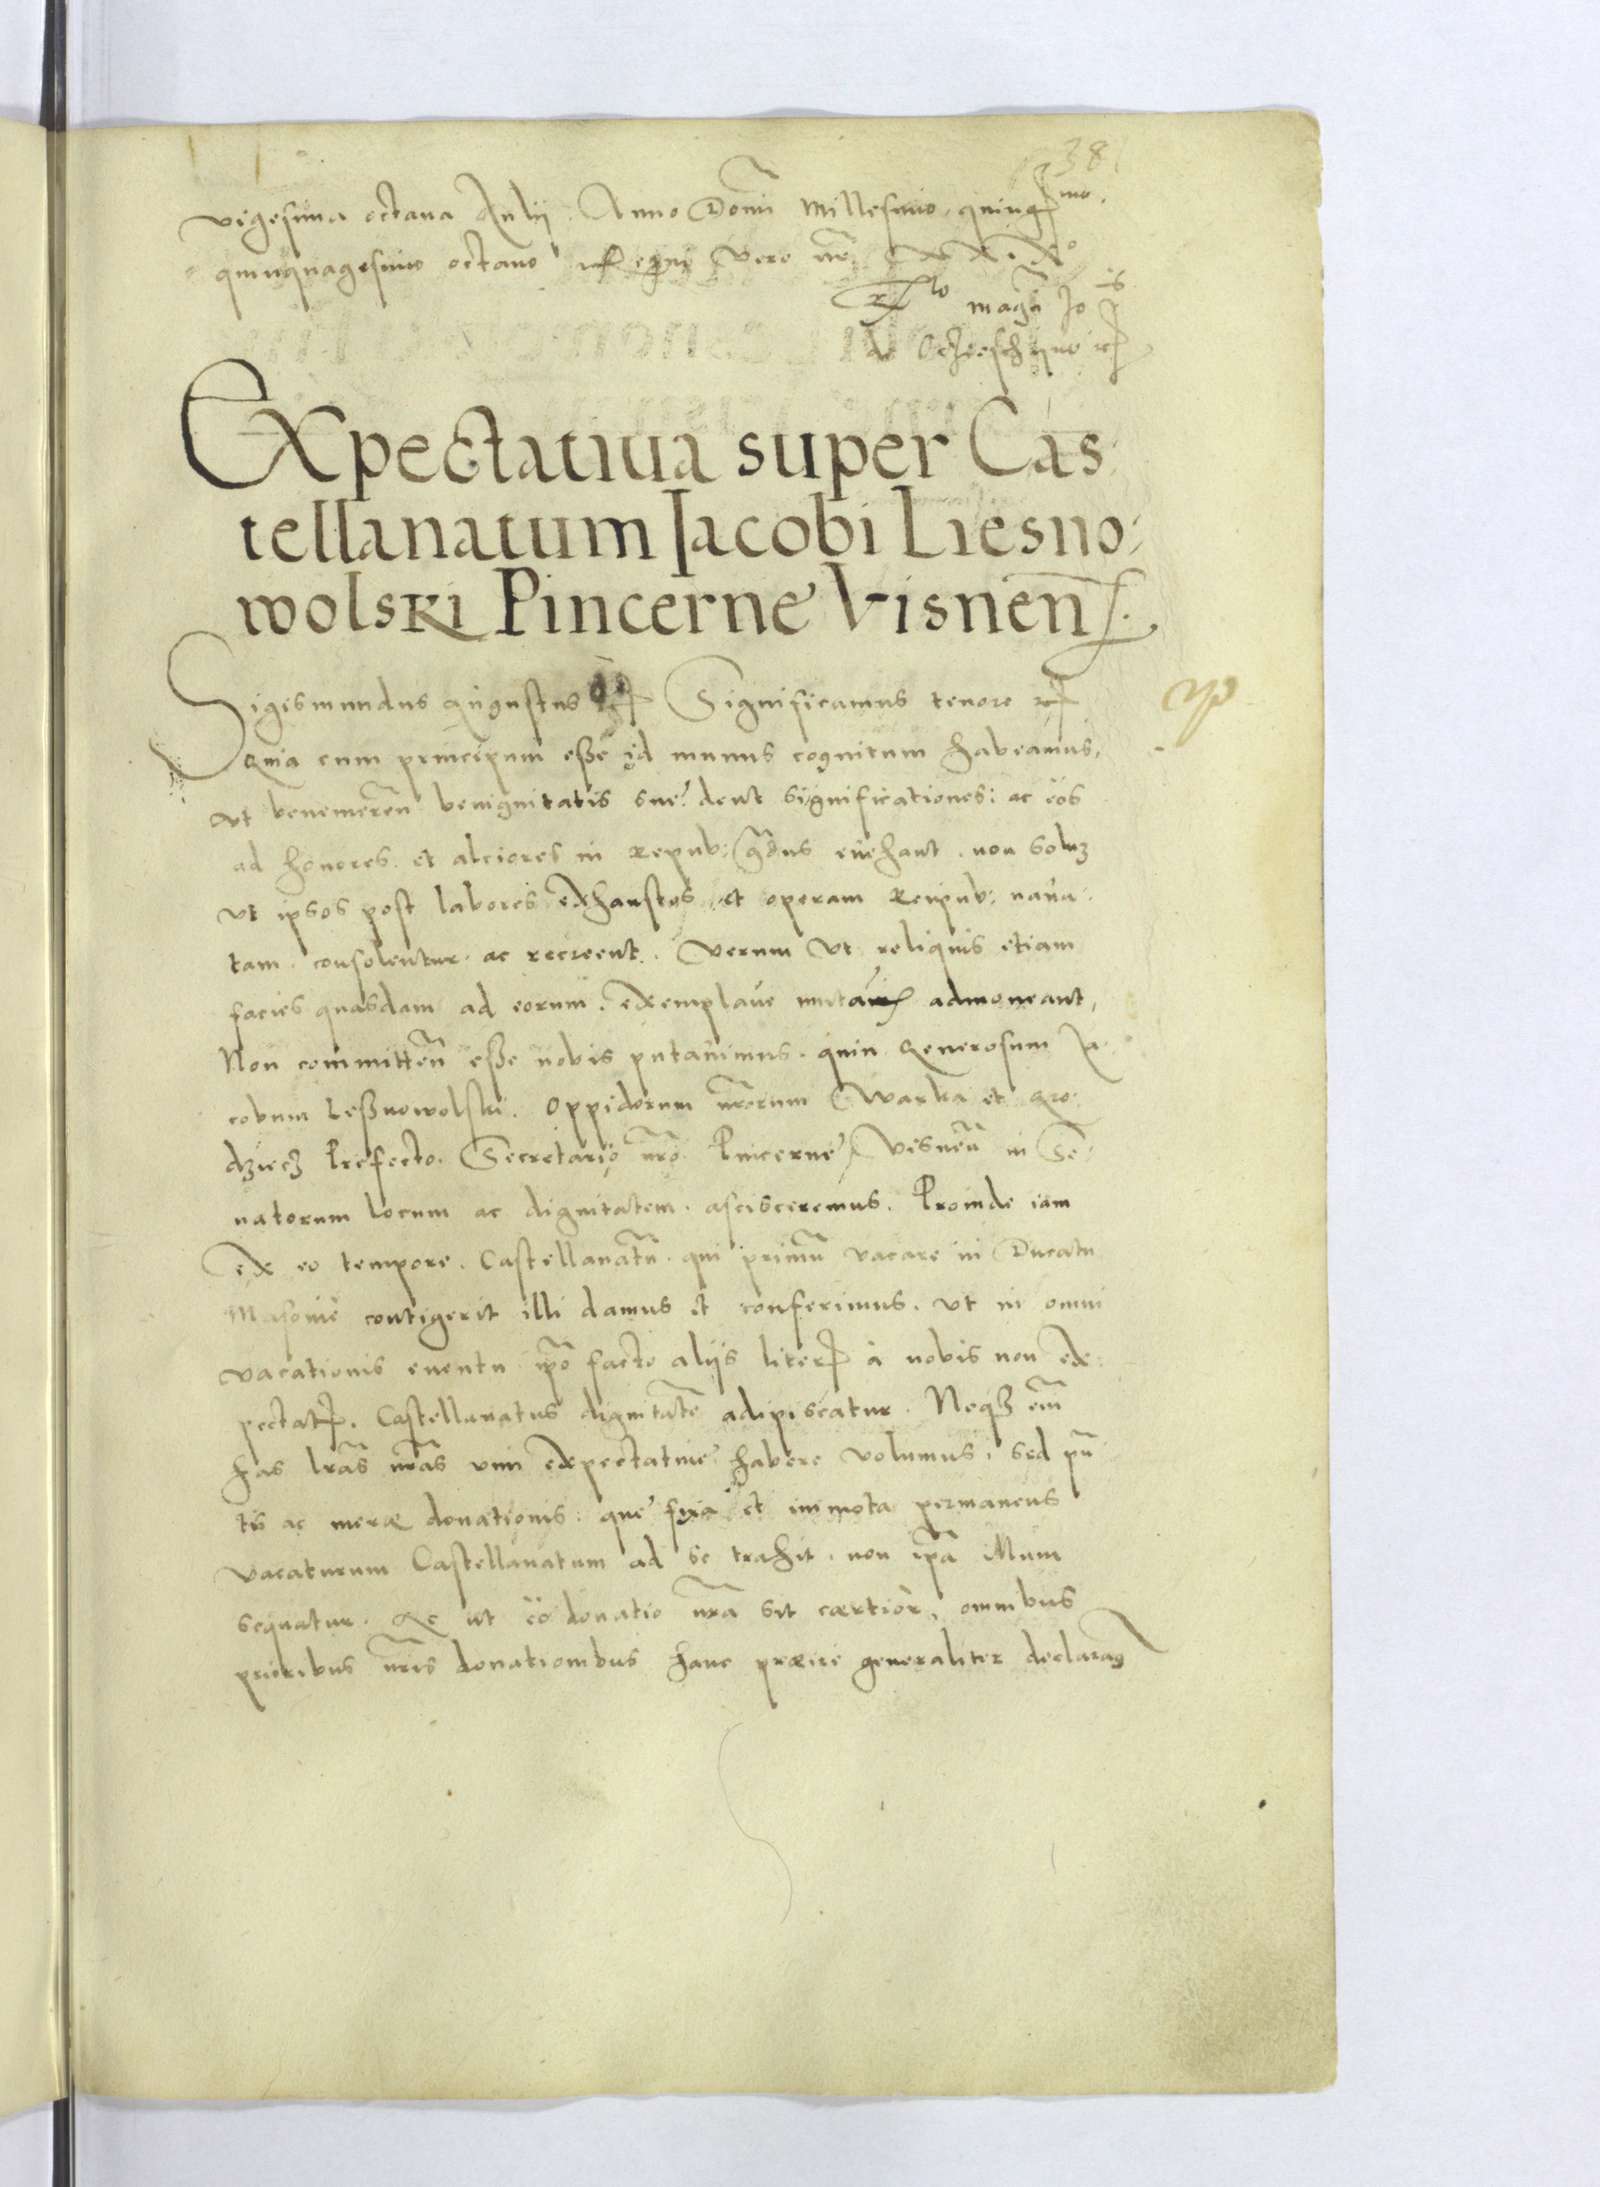 38
vigesima octava Julii. Anno Domi Millesimo quing mo.
quinquagesimo octavo Regni vero nri XXIXo
R lo magci Jo is
de Oczieschyno etc
Expectatiua super Cas
tellanatum Jacobi Liesno
wolski Pincerne Visnen.
Sigismundus Augustus etc Significamus tenore etc
Quia cum principum esse id munus cognitum habeamus,
ut benemeren benignitatis sue dent significationes: ac eos
ad honores et alciores in repub: gradus evehant. non soluz
ut ipsos post labores exhaustos et operam Reipub: nava
tam. consolentur ac recreent. verum ut reliquis etiam
facies quasdam ad eorum. exemplave admoneant,
Non committen esse nobis putavimus. quin Generosum Ja
cobum Lessnowolski. Oppidorum nrorum Warka et Gro
dziecz Prefecto. Secretario nro Pincerne Visnen in Se
natorum locum ac dignitatem. ascisceremus. Proinde iam
ex eo tempore. Castellanatu. qui primu vacare in Ducatu
Masovie contigerit illi damus et conferimus. ut in omni
vacationis eventu ipo facto aliis liter à nobis non ex
pectat. Castellanatus dignitate adipiscatur. Neqz eni
has lras nras vim expectative habere volumus, sed pu
ris ac meræ donationis. que fixa et immota permanens
vacaturum Castellanatum ad se trahit. non ipa illum
sequatur. Ac ut eo donatio nra sit certior, omnibus
prioribus nris donationibus hanc præire generaliter declaram